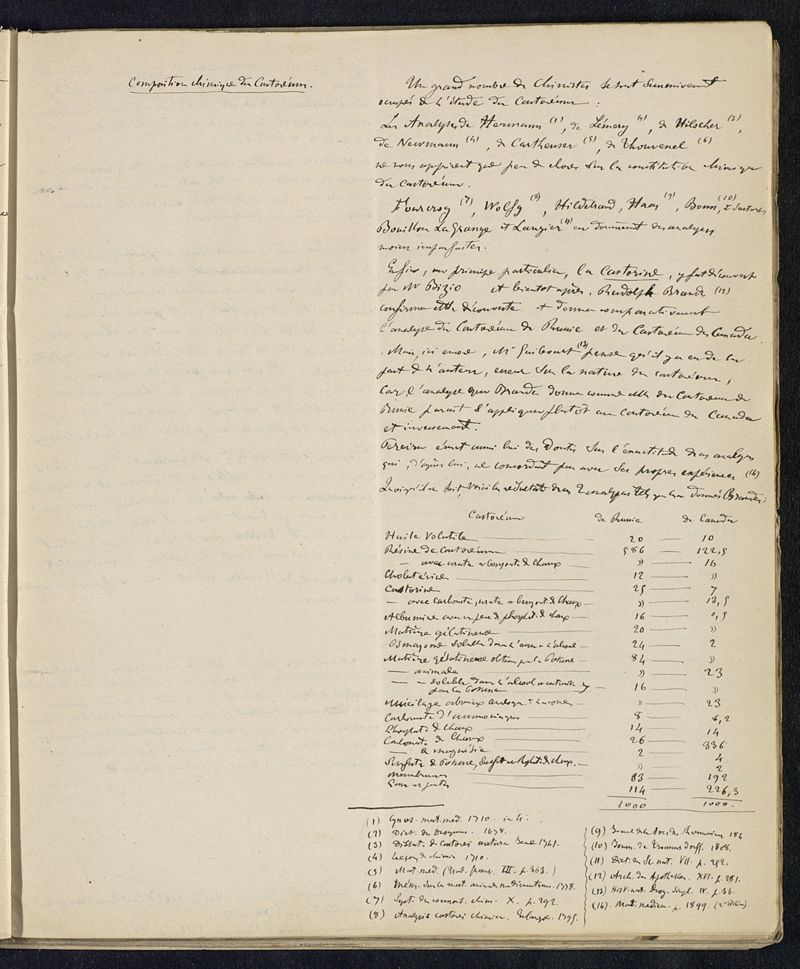 Composition chimique du Castoréum.
Un grand nombre de chimistes se sont
occupés de l'étude du Castoréum :
Les Analyses de Hermann (1), de Lémery (2), de Hilscher (3),
de Newmann (4), de Cartheuser (5), de Thouvenel (6)
ne nous apprirent que peu de choses sur la constitution chimique
du Castoréum.
Fourcroy (7), Wolfg (8), Hildebrand, Haas (9), Bonn, (10)
Bouillon La Grange et Laugier (11) en donnent des analyses
moins imparfaites.
Enfin, un principe particulier, la Castorine, y fut découvert
par Mr Bizio et bientôt après, Rudolph Brandes (12)
confirma cette découverte et donna comparativement
l'analyse du Castoréum de Russie et du Castoréum du Canada.
Mais, ici encore, Mr Guibourt (13) pense qu'il y a eu de la
part de l'auteur, erreur sur la nature du castoréum,
Car, l'analyse que Brandes donne comme celle du Castoréum de
Russie paraît s'appliquer plutôt au Castoréum du Canada
et inversement.
Pereira émet aussi lui des Doutes sur l'exactitude de ces analyses
qui, d'après lui, ne concordent pas avec ses propres expériences (14)
Quoiqu'il en soit, Voici les résultats de ces 2 analyses telles que les a données Brandes :
Castoréum de Russie du Canada
Huile Volatile 20 10
Résine de Castoréum 586 122,5
— avec urate et benzoate de Chaux " 16
Cholestérine 12 "
Castorine 25 7
— avec carbonate, urate et benzoate de Chaux " 13,5
Albumine avec un peu de phosphate de chaux 16 0,5
Matière gélatineuse 20 "
Osmazome soluble dans l'eau et l'alcool 24 2
Matière gélatineuse obtenue par la Potasse 84 "
— animale " 23
— — soluble dans l'alcool et extraite
par la Potasse 16 "
Mucilage " 23
Carbonate d'ammoniaque 8 8,2
Phosphate de Chaux 14 14
Carbonate de Chaux 26 336
— de magnésie 2 4
Sulfate de Potasse, Sulfate et Phosphate de chaux " 2
Membranes 83 192
Eau et pertes 114 226,3
1000 1000
(1) mat. med. 1710. in 4.
(2) Dict. des Drogues. 1698.
(3) Dissert. de Castorei natura 1741.
(4) Leçons de chimie 1710.
(5) Mat. méd. (Trad. franç. III. p. 363.)
(6) Mém. sur la nat. 1778.
(7) Syst. des connais. chim. X. p. 292.
(8) Analysis castorei chimica. Erlangæ. 1795.
(9)
(10) Journ. de Tromsdorff. 1808.
(11) Dict. des Sc. nat. VII. p. 252.
(12) Arch. des Apotheker. XVI. p. 281.
(13) Hist. nat. Drog. Simpl. IV. p. 36.
(14) Mat. medica. p. 1899. (2e édition).